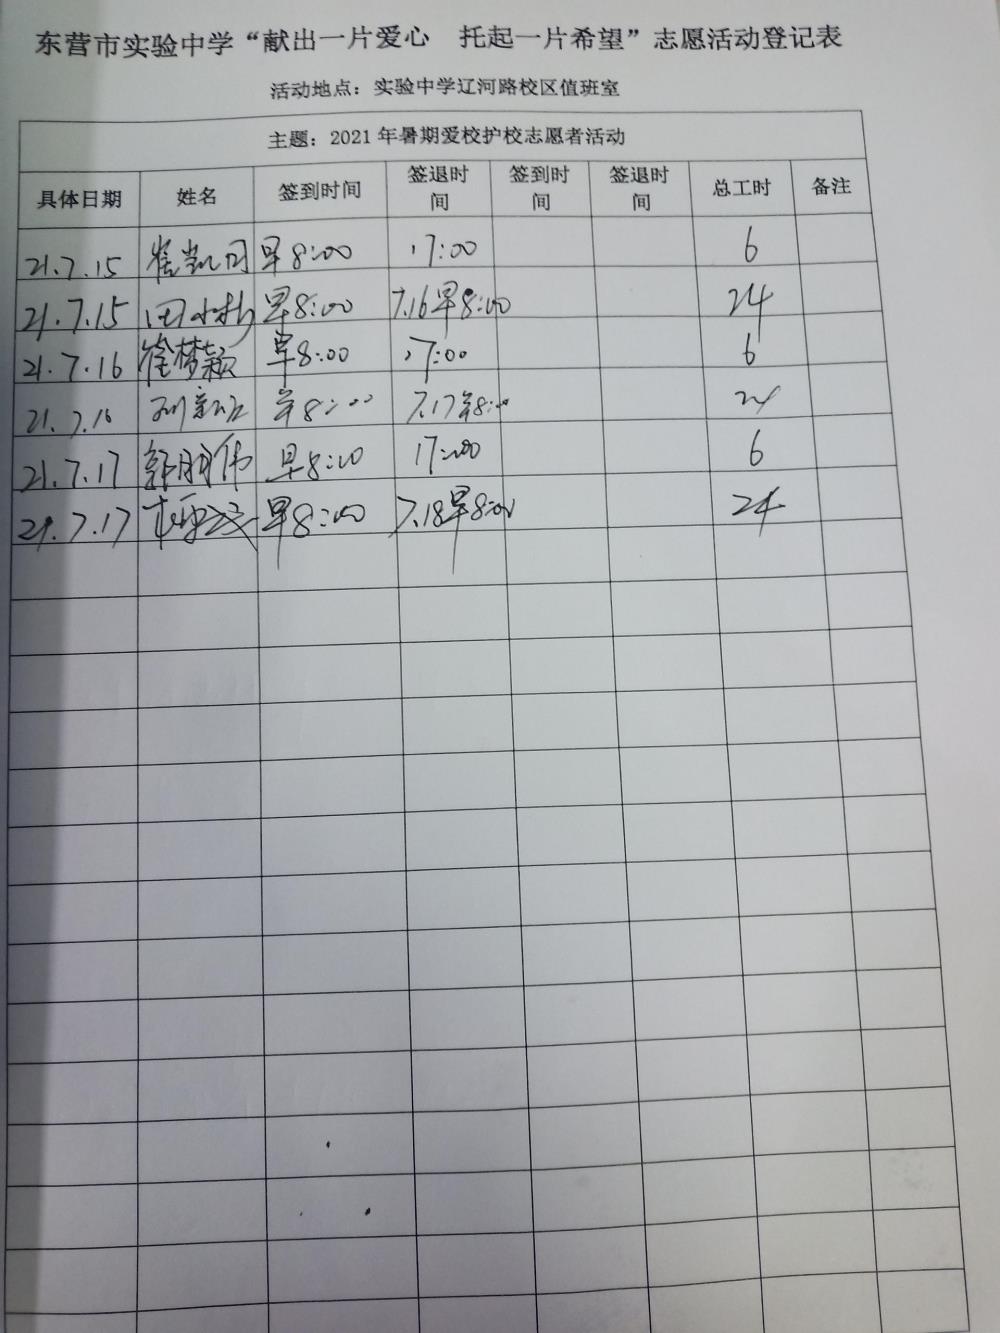 东营市实验中学“献出一片爱心 托起一片希望”志愿活动登记表
活动地点：实验中学辽河路校区值班室
主题：2021年暑期爱校护校志愿者活动
具体日期 姓名 签到时间 签退时间 签到时间 签退时间 总工时 备注
21.7.15 崔凯同 早8:00 17:00 6
21.7.15 早8:00 7.16早8:00 24
21.7.16 崔梦颖 早8:00 17:00 6
21.7.16 早8:00 7.17早8:00 24
21.7.17 早8:00 17:00 6
21.7.17 早8:00 7.18早8:00 24